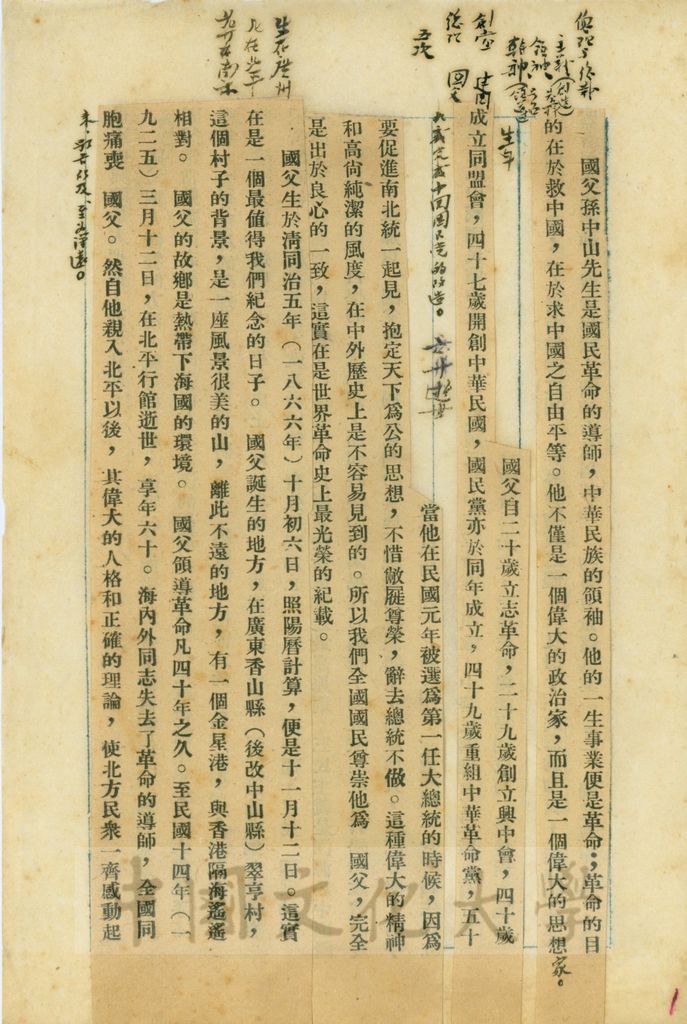 國父孫中山先生是國民革命的導師，中華民族的領袖。他的一生事業便是革命；革命的目
的在於救中國，在於求中國之自由平等。他不僅是一個偉大的政治家，而且是一個偉大的思想家。
生平
國父自二十歲立志革命，二十九歲創立興中會，四十歲
成立同盟會，四十七歲開創中華民國，國民黨亦於同年成立，四十九歲重組中華革命黨，五十
九歲完成中國國民黨的改造。
當他在民國元年被選為第一任大總統的時候，因為
要促進南北統一起見，抱定天下為公的思想，不惜敝屣尊榮，辭去總統不做。這種偉大的精神
和高尚純潔的風度，在中外歷史上是不容易見到的。所以我們全國國民尊崇他為 國父，完全
是出於良心的一致，這實在是世界革命史上最光榮的紀載。
國父生於清同治五年（一八六六年）十月初六日，照陽曆計算，便是十一月十二日。這實
在是一個最值得我們紀念的日子。 國父誕生的地方，在廣東香山縣（後改中山縣）翠亨村，
這個村子的背景，是一座風景很美的山，離此不遠的地方，有一個金星港，與香港隔海遙遙
相對。 國父的故鄉是熱帶下海國的環境。 國父領導革命凡四十年之久。至民國十四年（一
九二五）三月十二日，在北平行館逝世，享年六十。海內外同志失去了革命的導師，全國同
胞痛喪 國父。然自他親入北平以後，其偉大的人格和正確的理論，使北方民衆一齊感動起
生於廣州
死在北平
中國文化大學
1